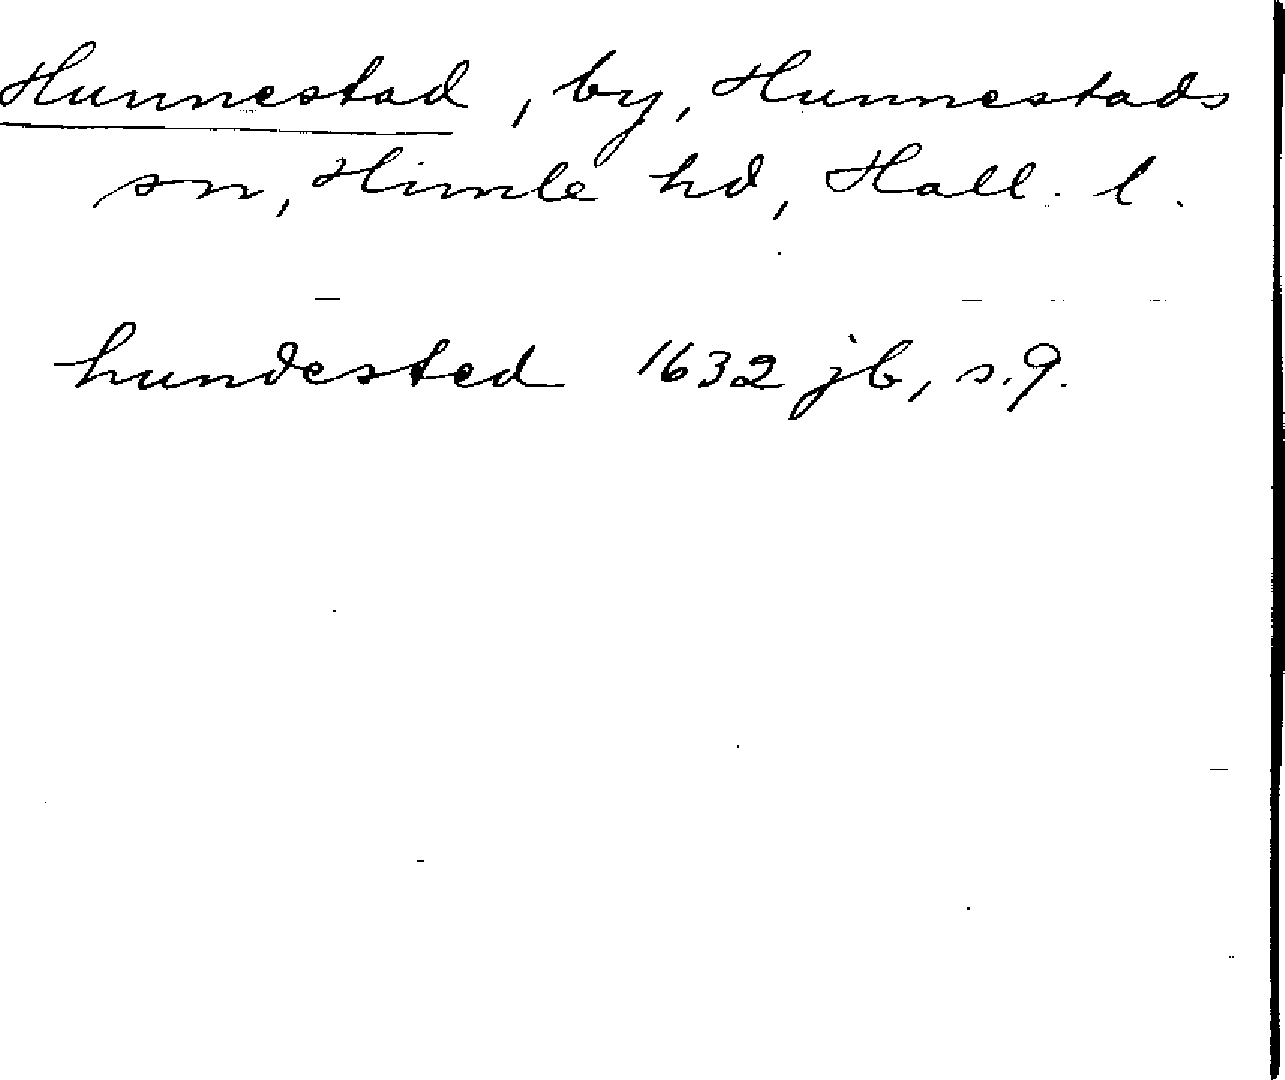 Hunnestad, by, Hunnestads
sn, Himle hd, Hall. l.
hundested 1632 jb, s. 9.